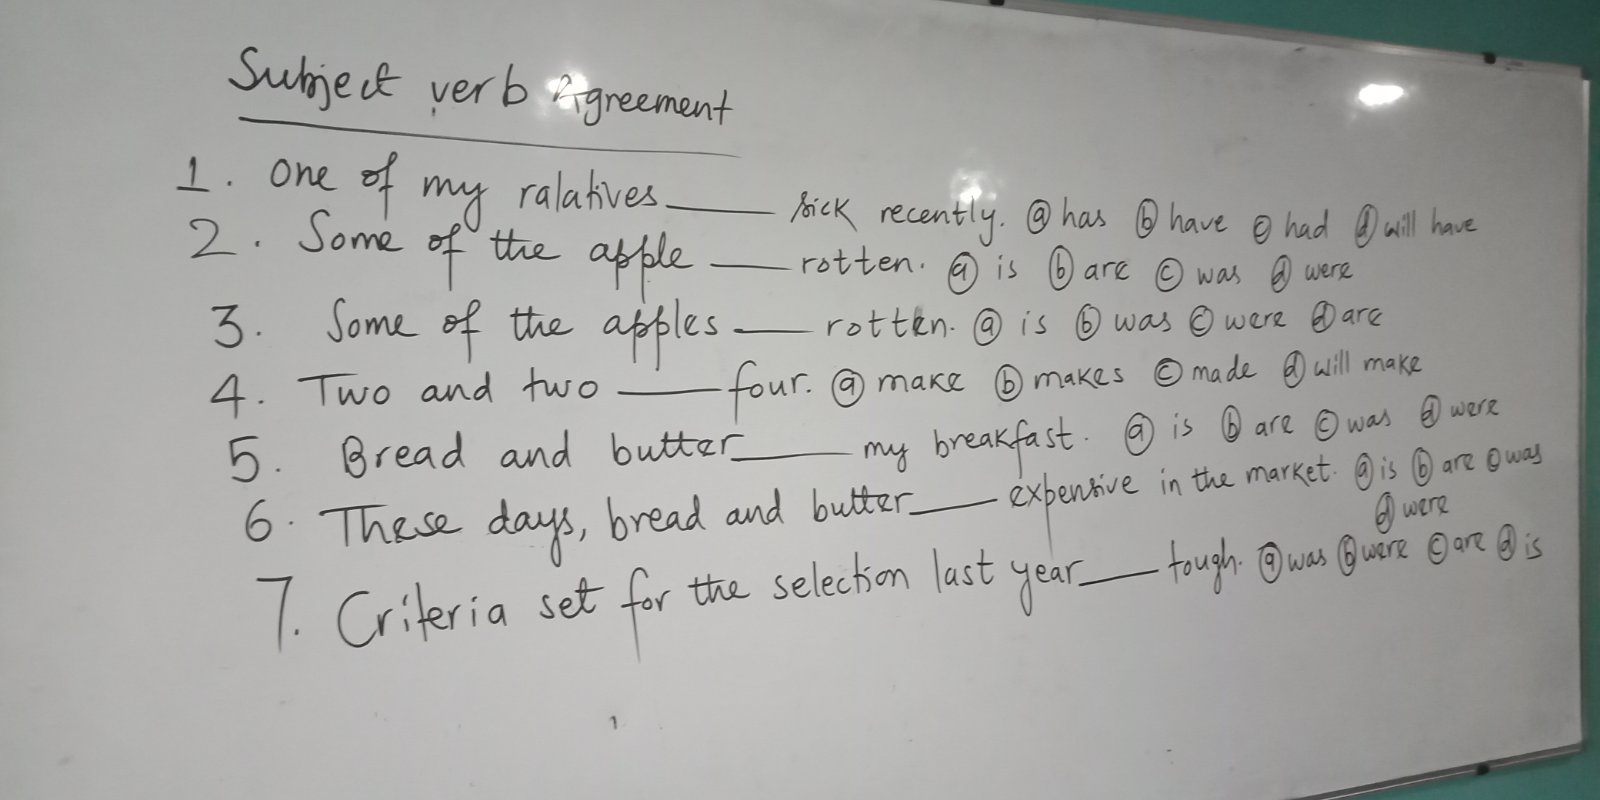 Subject verb Agreement
1. One of my ralatives ____ sick recently. ⓐ has ⓑ have ⓒ had ⓓ will have
2. Some of the apple ____ rotten. ⓐ is ⓑ are ⓒ was ⓓ were
3. Some of the apples ____ rotten. ⓐ is ⓑ was ⓒ were ⓓ are
4. Two and two ____ four. ⓐ make ⓑ makes ⓒ made ⓓ will make
5. Bread and butter ____ my breakfast. ⓐ is ⓑ are ⓒ was ⓓ were
6. These days, bread and butter ____ expensive in the market. ⓐ is ⓑ are ⓒ was
ⓓ were
7. Criteria set for the selection last year ____ tough. ⓐ was ⓑ were ⓒ are ⓓ is